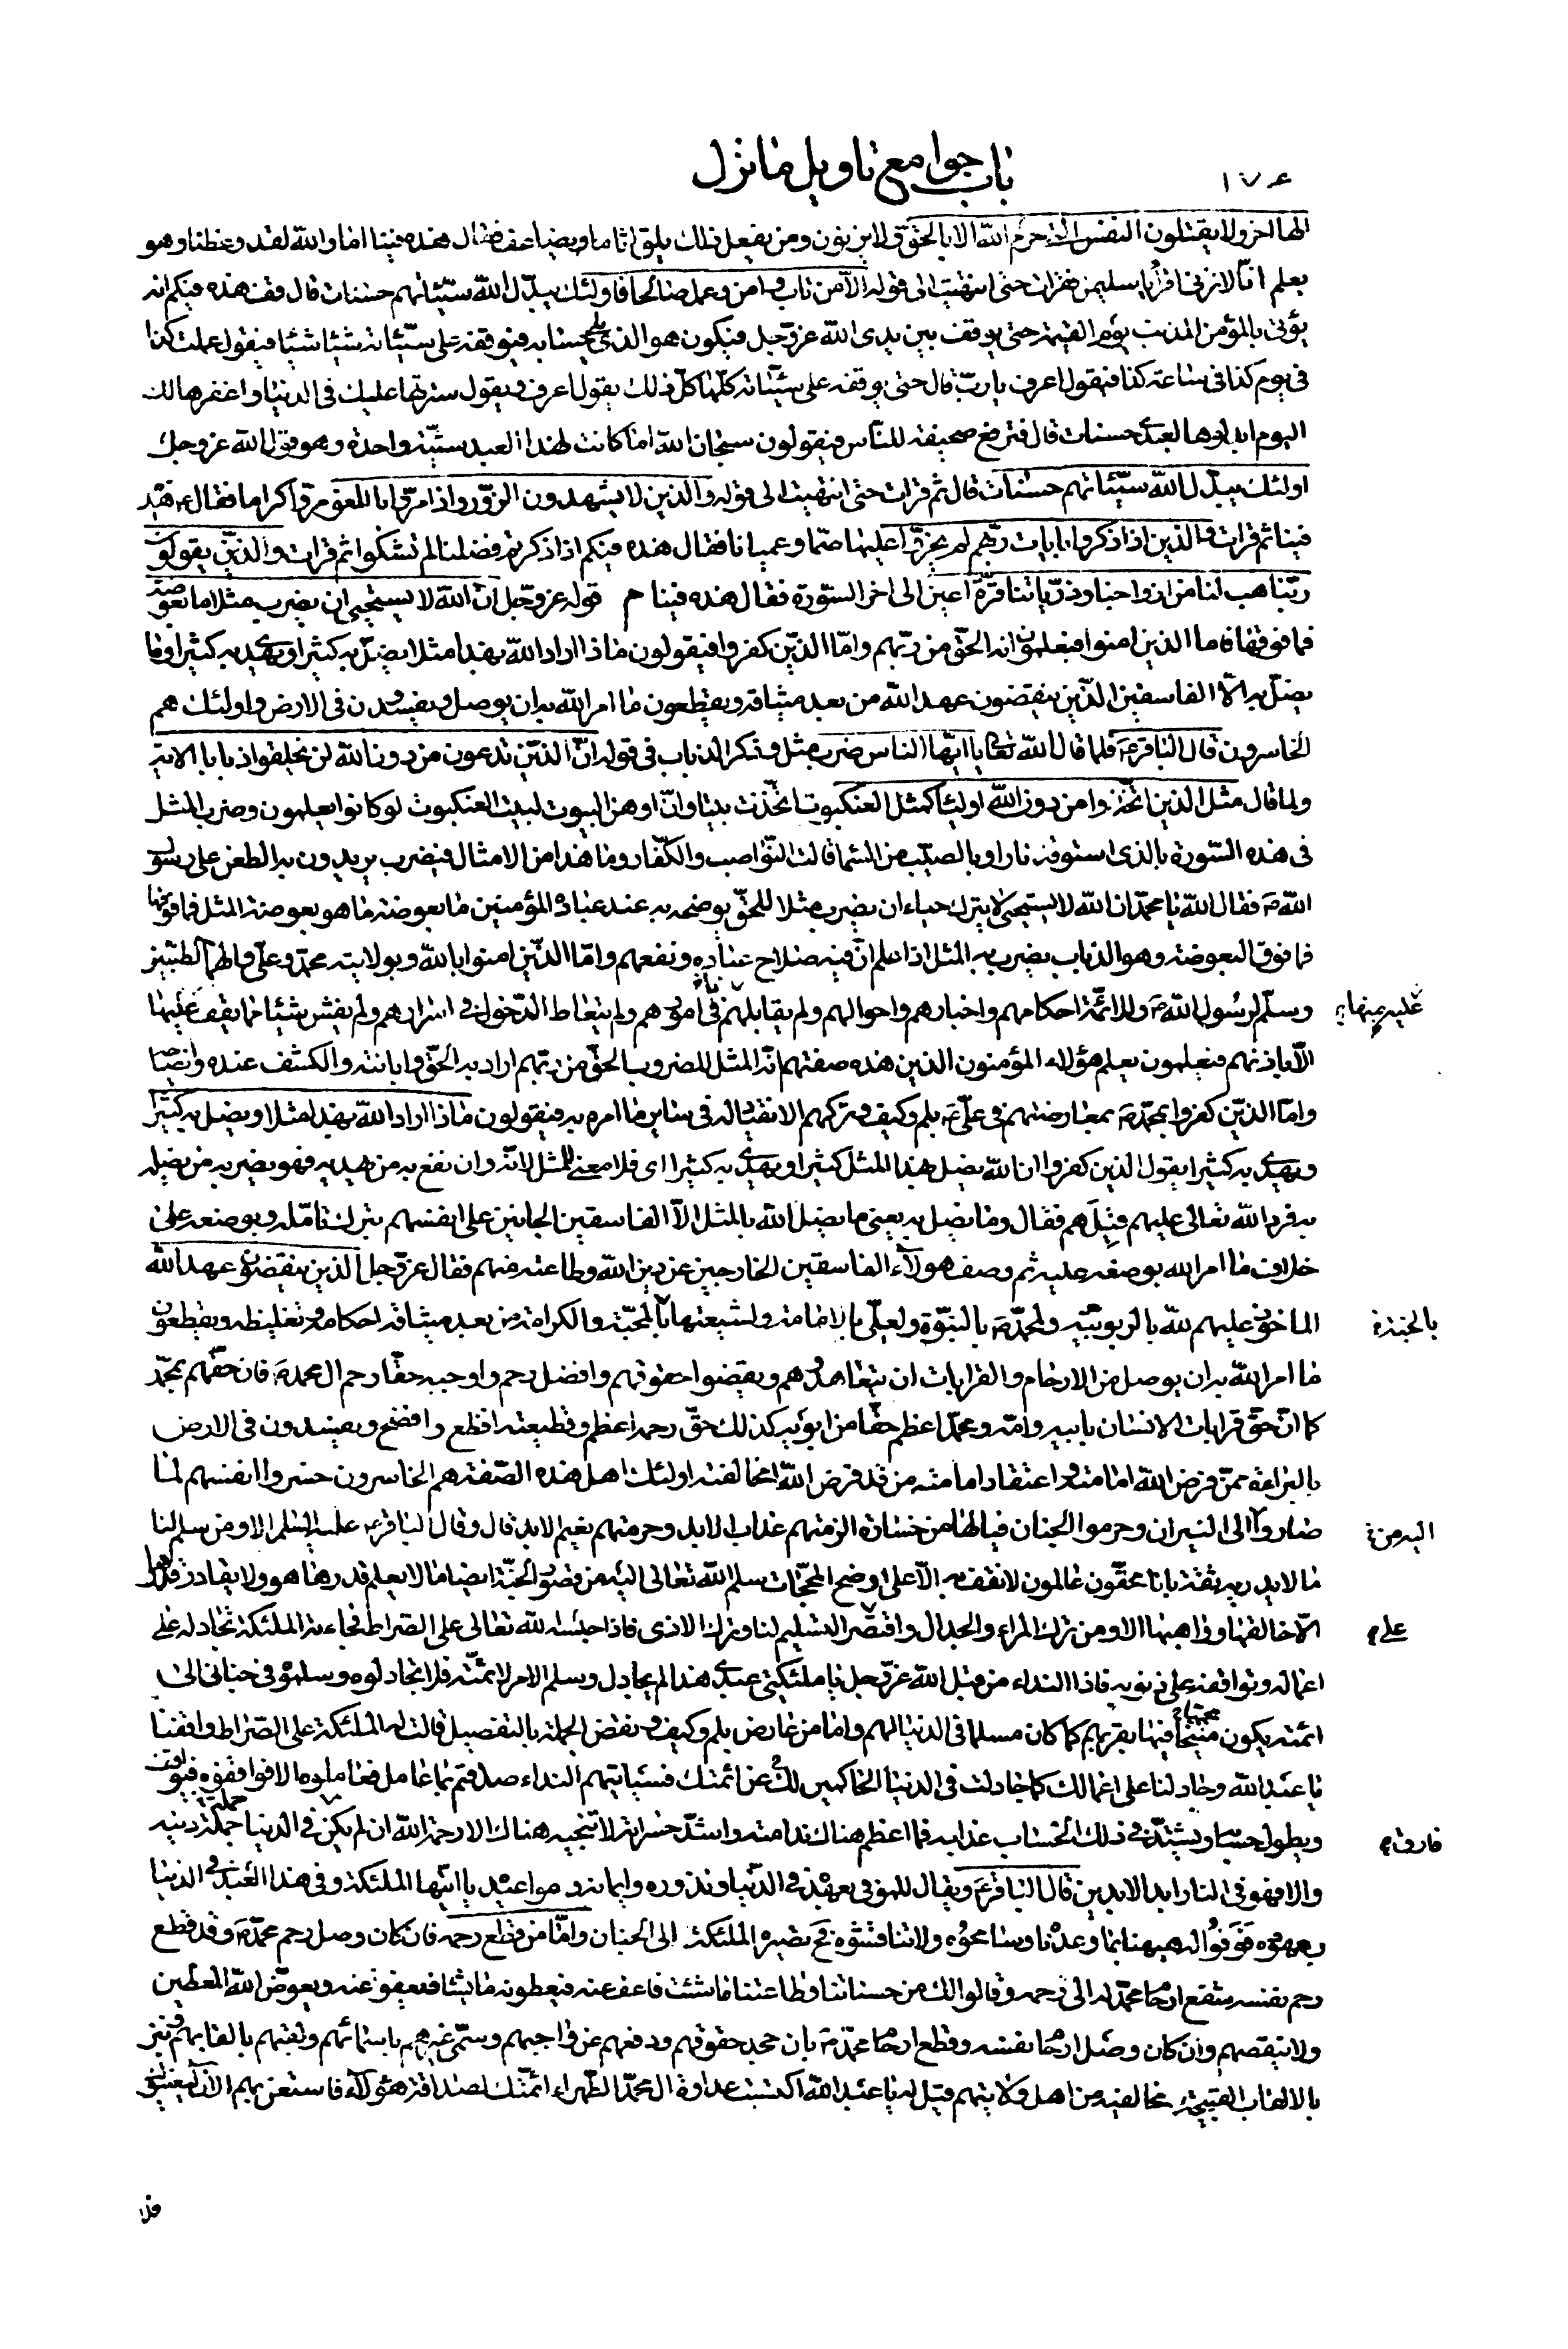 ١٧٤
باب جوامع تاويل ما نزل
الها اخر ولا يقتلون النفس التي حرم الله الا بالحق ولا يزنون ومن يفعل ذلك يلق اثاما ويضاعف فقال هذه فينا اما والله لقد وعظنا وهو
يعلم انا لا نزني اقرأ يا سليمن فقرات حتى انتهيت الى قوله الا من تاب وامن وعمل صالحا فاولئك يبدل الله سيئاتهم حسنات قال قف هذه فيكم انه
يؤتى بالمؤمن المذنب يوم القيمة حتى يوقف بين يدى الله عز وجل فيكون هو الذى يلى حسابه فيوقفه على سيئاته شيئا شيئا فيقول عملت كذا
في يوم كذا في ساعة كذا فيقول اعرف يا رب قال حتى يوقفه على سيئاته كلها كل ذلك يقول اعرف فيقول سترتها عليك في الدنيا واغفرها لك
اليوم ابدلوها لعبدى حسنات قال فترفع صحيفته للناس فيقولون سبحان الله اما كانت لهذا العبد سيئة واحدة وهو قول الله عز وجل
اولئك يبدل الله سيئاتهم حسنات قال ثم قرات حتى انتهيت الى قوله والذين لا يشهدون الزور واذا مروا باللغو مروا كراما فقال هذه
فينا ثم قرات والذين اذا ذكروا بايات ربهم لم يخروا عليها صما وعميانا فقال هذه فيكم اذا ذكرتم فضلنا لم تشكوا ثم قرات والذين يقولون
ربنا هب لنا من ازواجنا وذرياتنا قرة اعين الى اخر السورة فقال هذه فينا م قوله عز وجل ان الله لا يستحيى ان يضرب مثلا ما بعوضة
فما فوقها فاما الذين امنوا فيعلمون انه الحق من ربهم واما الذين كفروا فيقولون ماذا اراد الله بهذا مثلا يضل به كثيرا ويهدى به كثيرا وما
يضل به الا الفاسقين الذين ينقضون عهد الله من بعد ميثاقه ويقطعون ما امر الله به ان يوصل ويفسدون في الارض واولئك هم
الخاسرون قال الباقر ع فلما قال الله تعالى يا ايها الناس ضرب مثل وذكر الذباب في قوله ان الذين تدعون من دون الله لن يخلقوا ذبابا الاية
ولما قال مثل الذين اتخذوا من دون الله اولياء كمثل العنكبوت اتخذت بيتا وان اوهن البيوت لبيت العنكبوت لو كانوا يعلمون وضرب المثل
في هذه السورة بالذى استوقد نارا وبالصيب من السماء قالت النواصب والكفار وما هذا من الامثال فيضرب يريدون به الطعن على رسول
الله ص فقال الله يا محمد ان الله لا يستحيى لا يترك حياء ان يضرب مثلا للحق يوضحه به عند عباده المؤمنين ما بعوضة ما هو بعوضة المثل فما فوقها
فما فوق البعوضة وهو الذباب يضرب به المثل اذا علم ان فيه صلاح عباده ونفعهم واما الذين امنوا بالله وبولاية محمد وعلى والهما الطيبين
وسلم لرسول الله ص وللائمة احكامهم واخبارهم واحوالهم ولم يقابلهم في امورهم ولم يتعاط الدخول في اسرارهم ولم يفش شيئا مما يقف عليها
عليه منها
الا باذنهم فيعلمون يعلم هؤلاء المؤمنون الذين هذه صفتهم انه المثل المضروب الحق من ربهم اراد به الحق وابانته والكشف عنه وايضاحه
واما الذين كفروا بمحمد ص بمعارضتهم في على ع بلم وكيف وتركهم الانقياد له في ساير ما امر به فيقولون ماذا اراد الله بهذا مثلا ويضل به كثيرا
ويهدى به كثيرا يقول الذين كفروا ان الله يضل بهذا المثل كثيرا ويهدى به كثيرا اى فلا معنى للمثل لانه وان نفع به من يهديه فهو يضر به من يضله
به فرد الله تعالى عليهم قيلهم فقال وما يضل به يعنى ما يضل الله بالمثل الا الفاسقين الجانين على انفسهم بترك تامله وبوضعه على
خلاف ما امر الله بوضعه عليه ثم وصف هؤلاء الفاسقين الخارجين عن دين الله وطاعته منهم فقال عز وجل الذين ينقضون عهد الله
الماخوذ عليهم لله بالربوبية ولمحمد ص بالنبوة ولعلى بالامامة ولشيعتهما بالمحبة والكرامة من بعد ميثاقه احكامه وتغليظه ويقطعون
بالجنة
ما امر الله به ان يوصل من الارحام والقرابات ان يتعاهدوهم ويقضوا حقوقهم وافضل رحم واوجبه حقا رحم ال محمد ص فان حقهم بمحمد
كما ان حق قرابات الانسان بابيه وامه ومحمد اعظم حقا من ابويه كذلك حق رحمه اعظم وقطيعته افظع وافضح ويفسدون في الارض
بالبراءة ممن فرض الله امامته واعتقاد امامة من قد فرض الله مخالفته اولئك اهل هذه الصفة هم الخاسرون خسروا انفسهم لما
صاروا الى النيران وحرموا الجنان فيا لها من خسارة الزمتهم عذاب الابد وحرمتهم نعيم الابد قال وقال الباقر ع عليه السلم الا ومن سلم لنا
ما لا يدريه ثقة بانا محقون عالمون لا نقف به الا على اوضح المحجات سلم الله تعالى اليه من قصور الجنة ايضا ما لا يعلم قدرها هو ولا يقادر قدرها
الا خالقها وواهبها الا ومن ترك المراء والجدال واقتصر على التسليم لنا وترك الاذى فاذا حبسه الله تعالى على الصراط فجاءته الملئكة تجادله على
على
اعماله وتواقفه على ذنوبه فاذا النداء من قبل الله عز وجل يا ملئكتي عبدى هذا لم يجادل وسلم الامر لائمته فلا تجادلوه وسلموه في جناني الى
ائمته يكون متبححا فيها بقربهم كما كان مسلما في الدنيا لهم واما من عارض بلم وكيف ونقض الجملة بالتفصيل قالت له الملئكة على الصراط واقفنا
يا عبد الله وجادلنا على اعمالك كما جادلت في الدنيا الحاكين لك عن ائمتك فسياتيهم النداء صدقتم بما عامل فعاملوه الا فواقفوه فيواقف
ويطول حسابه ويشتد في ذلك الحساب عذابه فما اعظم هناك ندامته واشد حسراته لا تنجيه هناك الا رحمة الله ان لم يكن في الدنيا جملة دينه
فارق
والا فهو في النار ابد الابدين قال الباقر ع ويقال للموفى بعهوده في الدنيا ونذوره وايمانه ومواعيده يا ايتها الملئكة وفى هذا العبد في الدنيا
بعهوده فوفوا له هيهنا بما وعدناه وسامحوه ولا تناقشوه فح تصيره الملئكة الى الجنان واما من قطع رحمه فان كان وصل رحم محمد ص وقد قطع
رحم نفسه شفع ارحام محمد له الى رحمه وقالوا لك من حسناتنا وطاعتنا ما شئت فاعف عنه فيعطونه ما يشاء فيعفو عنه ويعوض الله المعطين
ولا ينقصهم وان كان وصل ارحام نفسه وقطع ارحام محمد ص بان جحد حقوقهم ودفعهم عن واجبهم وسمى غيرهم باسمائهم ولقبهم بالقابهم ونبز
بالالقاب القبيحة مخالفيه من اهل ولايتهم قيل له يا عبد الله اكتسبت عداوة ال محمد الطهراء ائمتك لصداقة هؤلاء فاستعن بهم الان ليعينوك
فلا